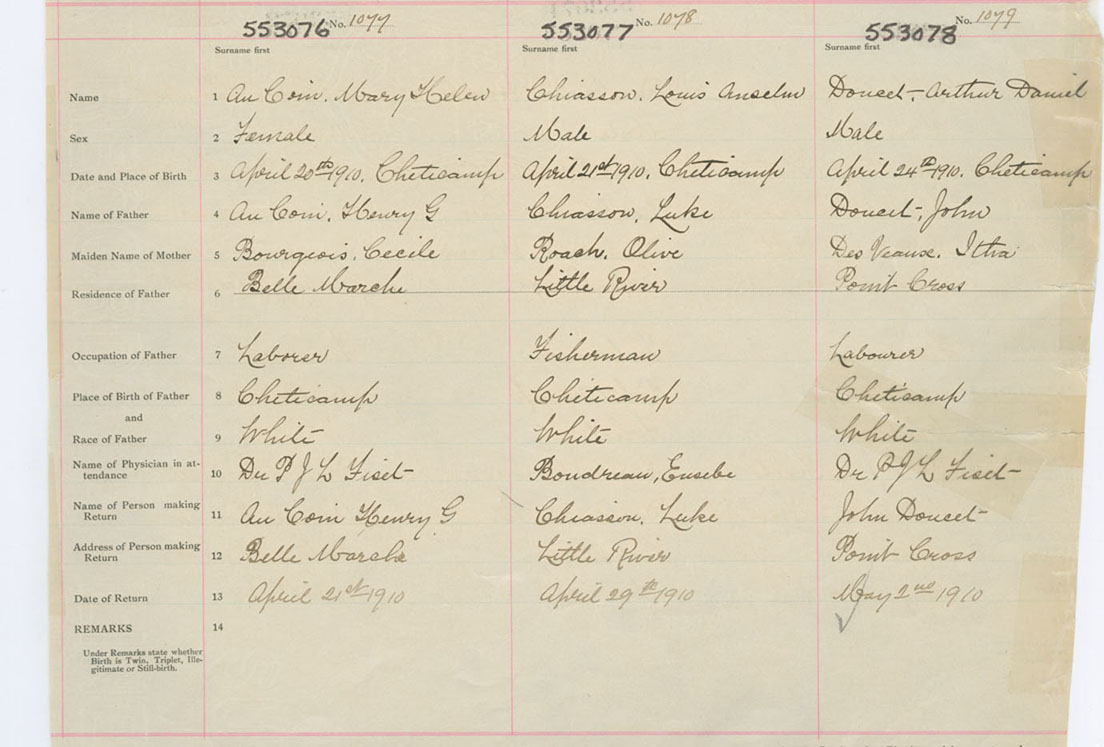 553076 No. 1077 553077 No. 1078 553078 No. 1079
Surname first Surname first Surname first
Name 1 Au Coin, Mary Helen Chiasson, Louis Anselm Doucet, Arthur Daniel
Sex 2 Female Male Male
Date and Place of Birth 3 April 20th 1910, Cheticamp April 21st 1910, Cheticamp April 24th 1910, Cheticamp
Name of Father 4 Au Coin, Henry G Chiasson, Luke Doucet, John
Maiden Name of Mother 5 Bourgeois, Cecile Roach, Olive Des Veaux, Itha
Residence of Father 6 Belle Marche Little River Point Cross
Occupation of Father 7 Laborer Fisherman Labourer
Place of Birth of Father 8 Cheticamp Cheticamp Cheticamp
and
Race of Father 9 White White White
Name of Physician in at-
tendance 10 Dr P J L Fiset Boudreau, Eusebe Dr P J L Fiset
Name of Person making
Return 11 Au Coin Henry G Chiasson, Luke John Doucet
Address of Person making
Return 12 Belle Marche Little River Point Cross
Date of Return 13 April 21st 1910 April 29th 1910 May 2nd 1910
REMARKS 14
Under Remarks state whether
Birth is Twin, Triplet, Ille-
gitimate or Still-birth.